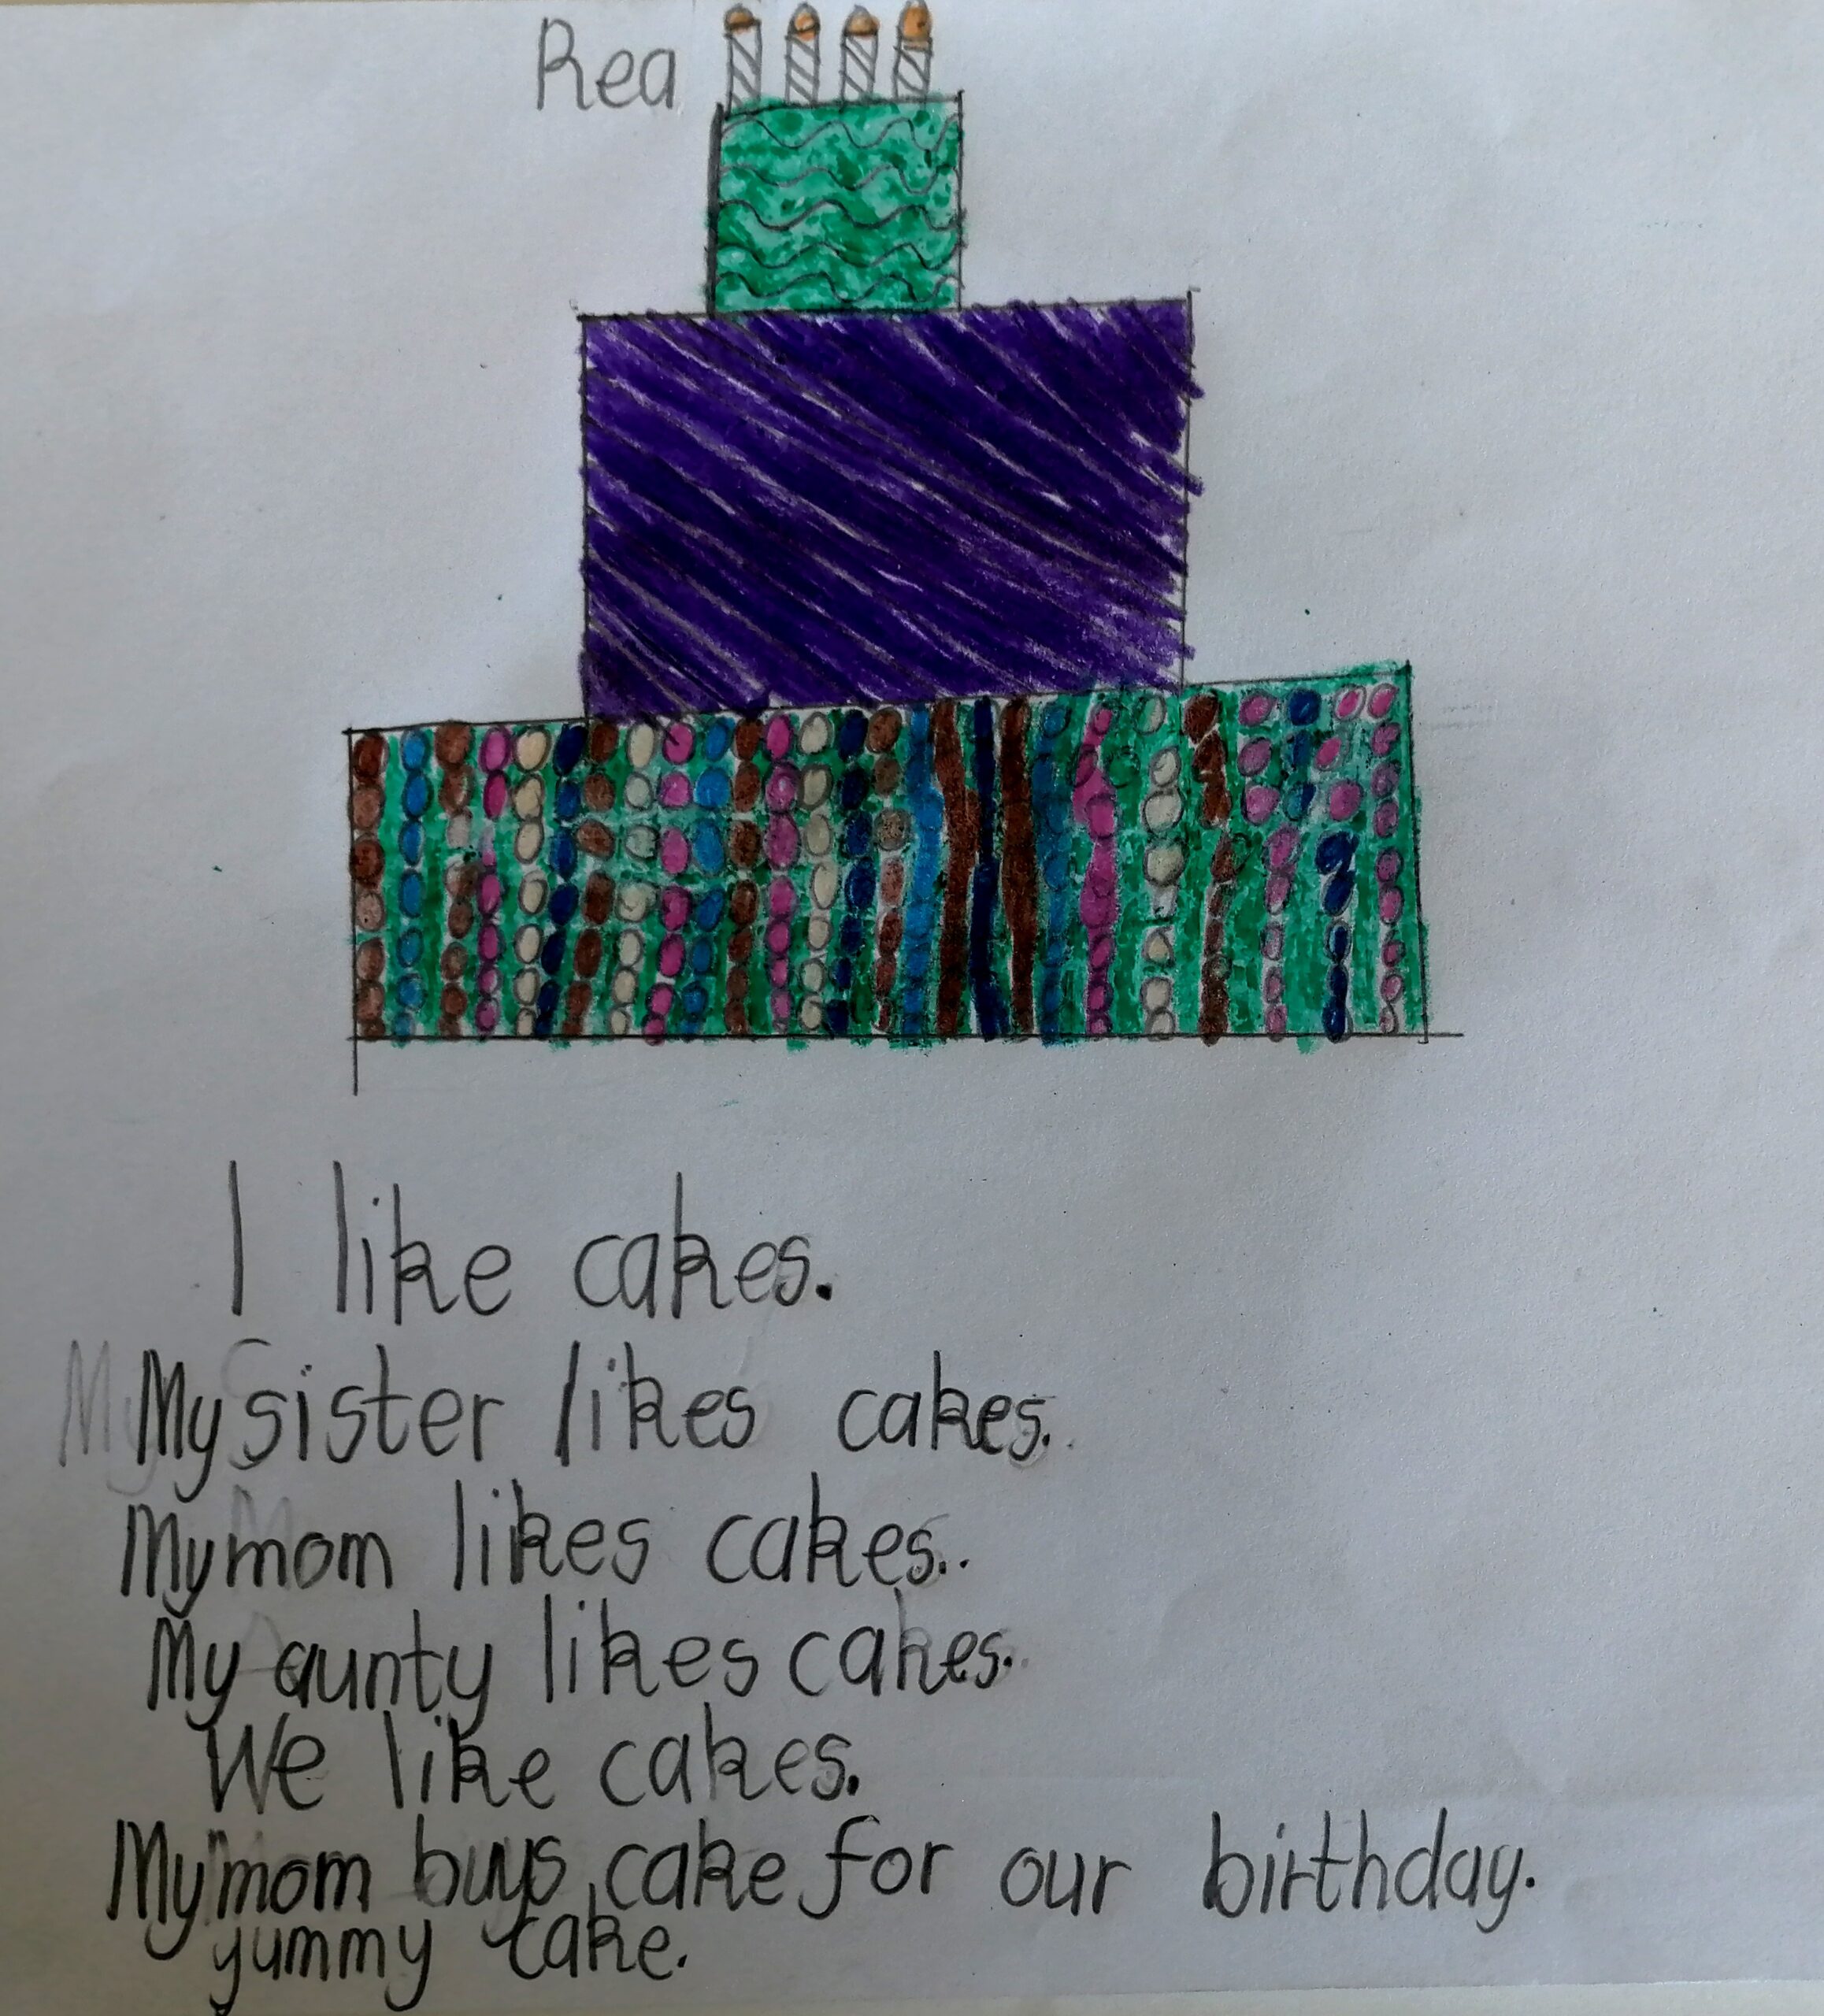 Rea
I like cakes.
My sister likes cakes.
My mom likes cakes..
My aunty likes cakes.
We like cakes.
My mom buys cake for our birthday.
yummy cake.